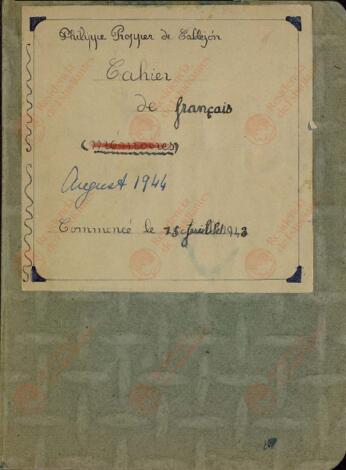 Philippe Propper de Callejón
Cahier
de français
(Mémoires)
August 1944
Commencé le 15 juillet 1943